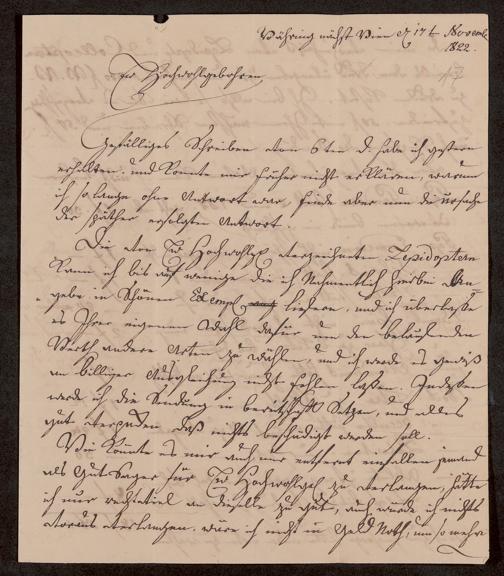 Währing nächst Wien d 17t Novemb
1822.
Euer Hochwohlgebohren
Gefälliges Schreiben vom 6ten d. habe ich gestern
erhalten. und konnte mir früher nicht erklären, warum
ich so lange ohne Antwort war, finde aber nun die Ursache
der später erfolgten Antwort.
Die von Euer Hochwohlg verzeichneten Lepidoptern
kann ich bis auf wenige die ich Nahmentlich hierbei An-
gebe in Schönen Exempl liefern, und ich überlasse
es Ihrer eigenen Wahl dafür um den belaufenden
Werth andere Arten zu wählen, und ich werde es gewiß
an billiger Ausgleichung nicht fehlen lassen. Indessen
werde ich die Sendung in bereitschaft Setzen, und alles
gut verpacken daß nichts beschädigt werden soll.
Wie könnte es mir auch nur entfernt einfallen jemand
als Gut Sager für Euer Hochwohlgeb zu verlangen, hätte
ich nur dieselbe zu gut, auch würde ich nichts
voraus verlangen. wäre ich nicht in Geld Noth, um so mehr